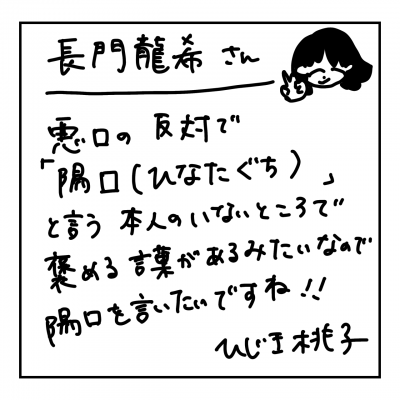 長門龍希 さん
悪口の 反対で
「陽口(ひなたぐち)」
と言う 本人のいないところで
褒める 言葉があるみたいなので
陽口を言いたいですね!!
ひじ玉桃子